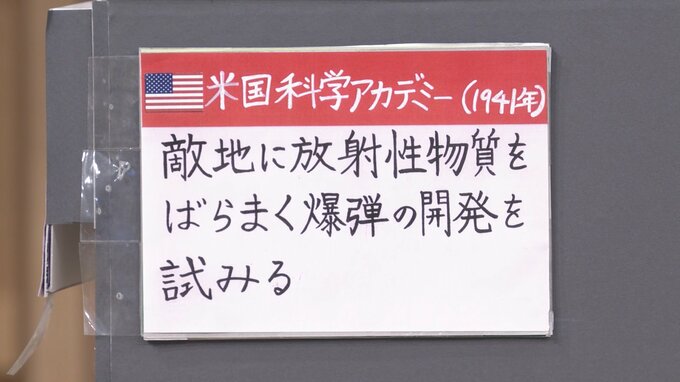 米国科学アカデミー(1941年)
敵地に放射性物質を
ばらまく爆弾の開発を
試みる